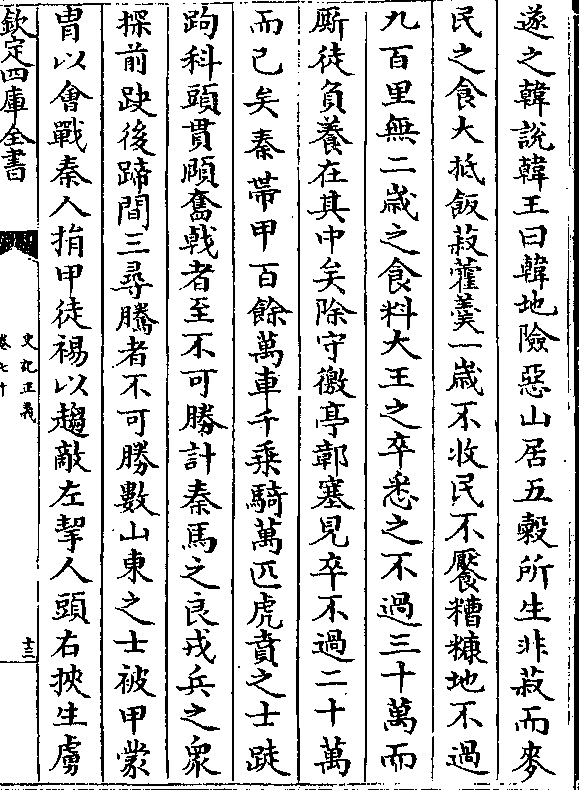 遂之韓說韓王曰韓地險惡山居五穀所生非菽而麥
民之食大抵飯菽藿羮一歳不收民不饜糟糠地不過
九百里無二歳之食料大王之卒悉之不過三十萬而
厮徒負養在其中矣除守徼亭鄣塞見卒不過二十萬
而已矣秦帶甲百餘萬車千乗騎萬匹虎賁之士跿
跔科頭貫頤奮㦸者至不可勝計秦馬之良戎兵之衆
探前趹後蹄間三尋騰者不可勝數山東之士被甲蒙
胄以會戰秦人捐甲徒裼以趨敵左挈人頭右挾生虜
欽定四庫全書
史記正義
卷七十
十三